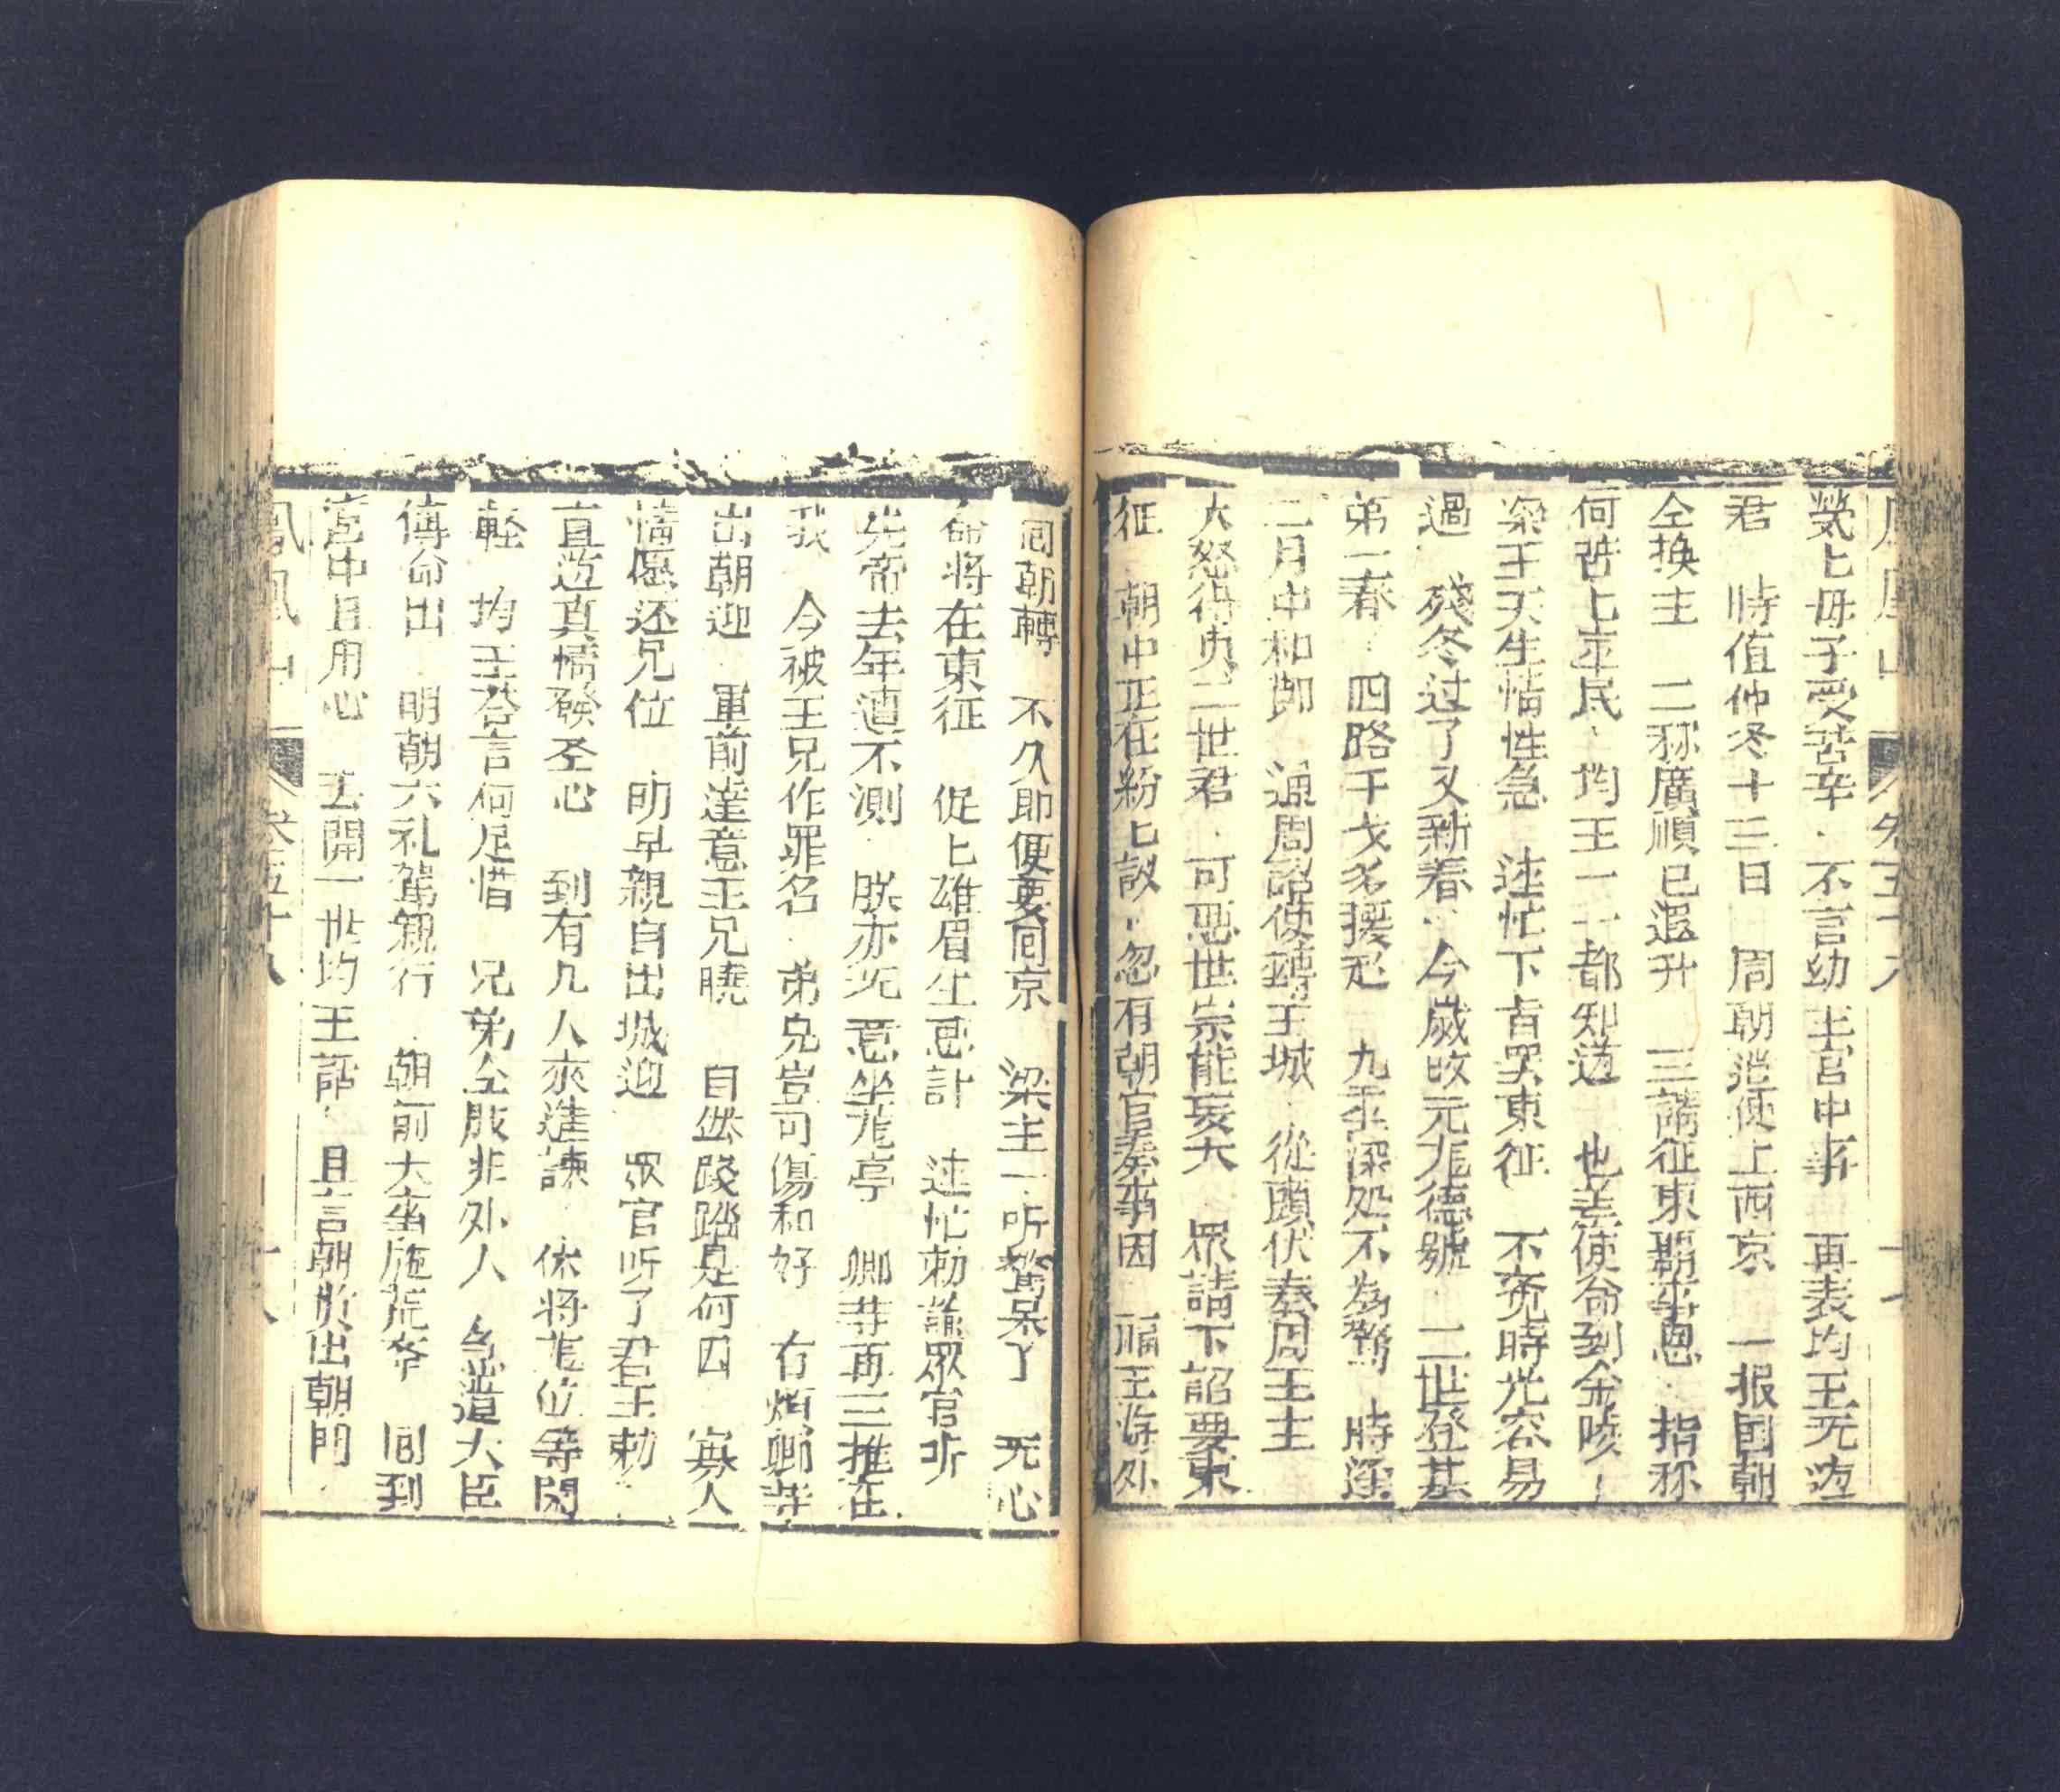 鳳凰山 卷五十八 十七
煢匕母子受苦辛 不言幼主宮中事 再表均王无边
君 時值仲冬十三日 周朝迯使上西京 一报國朝
仝换主 二称廣順已遐升 三請征東期事恩 指称
何苦匕平民 均王一一都知道 也差使命到金陵
梁王天生情性急 连忙下旨哭東征 不觉時光容易
過 殘冬过了又新春 今歲改元龙德號 二世登基
弟一春 四路干戈多援起 九重深处不為驚 時逢
二月中和節 通周詔使轉王城 從頭伏奏周王主
大怒得九二世君 可惡世崇能妄大 眾請下詔要東
征 朝中正在紛匕說 忽有朝官奏事因 福王海外
囘朝轉 不久即便要囘京 梁主一听驚呆了 无心
命将在東征 促匕雄眉生惡計 连忙勅諭眾官听
先帝去年遭不測 朕亦无意坐龙亭 卿等再三推在
我 今被王兄作罪名 弟兄豈可傷和好 有煩卿等
出朝迎 軍前達意王兄曉 自然踐踏是何因 寡人
情愿还兄位 明早親自出城迎 眾官听了君王勅
直道真情發圣心 到有几人來進諫 休将龙位等閑
軽 均王荅言何足惜 兄弟仝胞非外人 忽遣大臣
傳命出 明朝六礼駕親行 朝前大亊施荒爷 囘到
宮中且用心 丢開一世均王話 且言朝臣出朝門
鳳凰山 卷五十八 十八